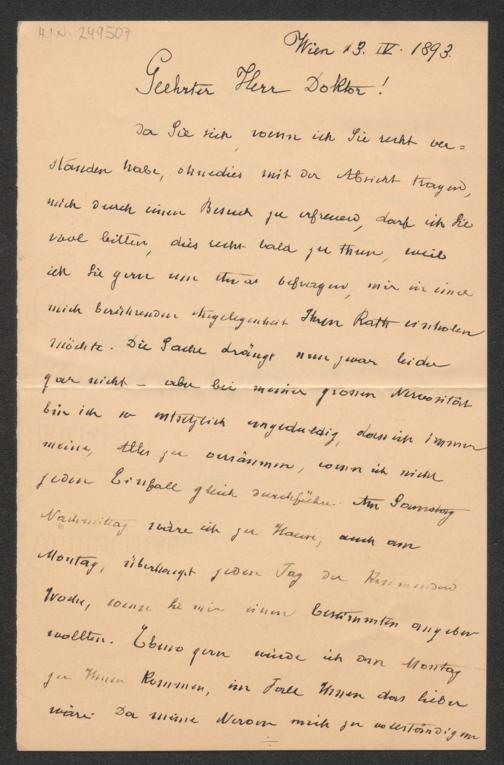 H.I.N. 249507
Wien 13. IV. 1893.
Geehrter Herr Doktor!
Da Sie sich, wenn ich Sie recht ver=
standen habe, ohnedies mit der Absicht tragen,
mich durch einen Besuch zu erfreuen, darf ich Sie
wol bitten, dies recht bald zu thun, weil
ich Sie gern um Etwas befragen, mir in einer
mich berührenden Angelegenheit Ihren Rath einholen
möchte. Die Sache drängt nun zwar leider
gar nicht – aber bei meiner grossen Nervosität
bin ich so entsetzlich ungeduldig, dass ich immer
meine, Alles zu versäumen, wenn ich nicht
jeden Einfall gleich durchführe. Am Samstag
Nachmittag wäre ich zu Hause, auch am
Montag, überhaupt jeden Tag der kommenden
Woche, wenn Sie mir einen bestimmten angeben
wollten. Ebenso gern würde ich am Montag
zu Ihnen kommen, im Falle Ihnen das lieber
wäre. Da meine Nerven mich zu vollständigem